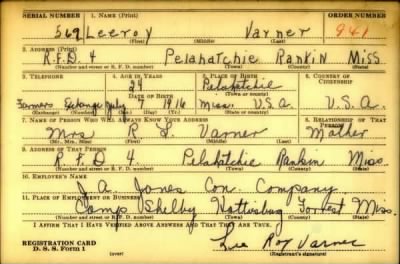 SERIAL NUMBER 1. NAME (Print) ORDER NUMBER
569 Leeroy Varner 941
(First) (Middle) (Last)
2. ADDRESS (Print)
R.F.D. 4 Pelahatchie Rankin Miss
(Number and street or R. F. D. number) (Town) (County) (State)
3. TELEPHONE 4. AGE IN YEARS 5. PLACE OF BIRTH 6. COUNTRY OF CITIZENSHIP
24 Pelahatchie
DATE OF BIRTH (Town or county)
Farmers Exchange July 7 1916 Miss. U.S.A. U.S.A.
(Exchange) (Number) (Mo.) (Day) (Yr.) (State or country)
7. NAME OF PERSON WHO WILL ALWAYS KNOW YOUR ADDRESS 8. RELATIONSHIP OF THAT PERSON
Mrs R. L. Varner Mother
(Mr., Mrs., Miss) (First) (Middle) (Last)
9. ADDRESS OF THAT PERSON
R.F.D 4 Pelahatchie Rankin Miss.
(Number and street or R. F. D. number) (Town) (County) (State)
10. EMPLOYER'S NAME
J. A. Jones Con. Company
11. PLACE OF EMPLOYMENT OR BUSINESS
Camp Shelby Hattisburg Forrest Miss.
(Number and street or R. F. D. number) (Town) (County) (State)
I AFFIRM THAT I HAVE VERIFIED ABOVE ANSWERS AND THAT THEY ARE TRUE.
REGISTRATION CARD
D. S. S. Form 1 (over) Lee Roy Varner
(Registrant's signature)